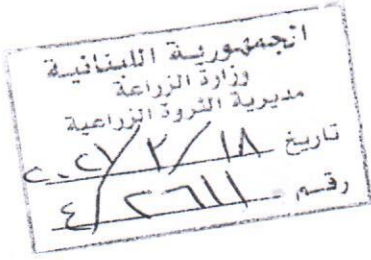 الجمهورية اللبنانية
وزارة الزراعة
مديرية الثروة الزراعية
تاريخ ١٨/٢/٢٠٢٧
رقم ٤/٢٦١١